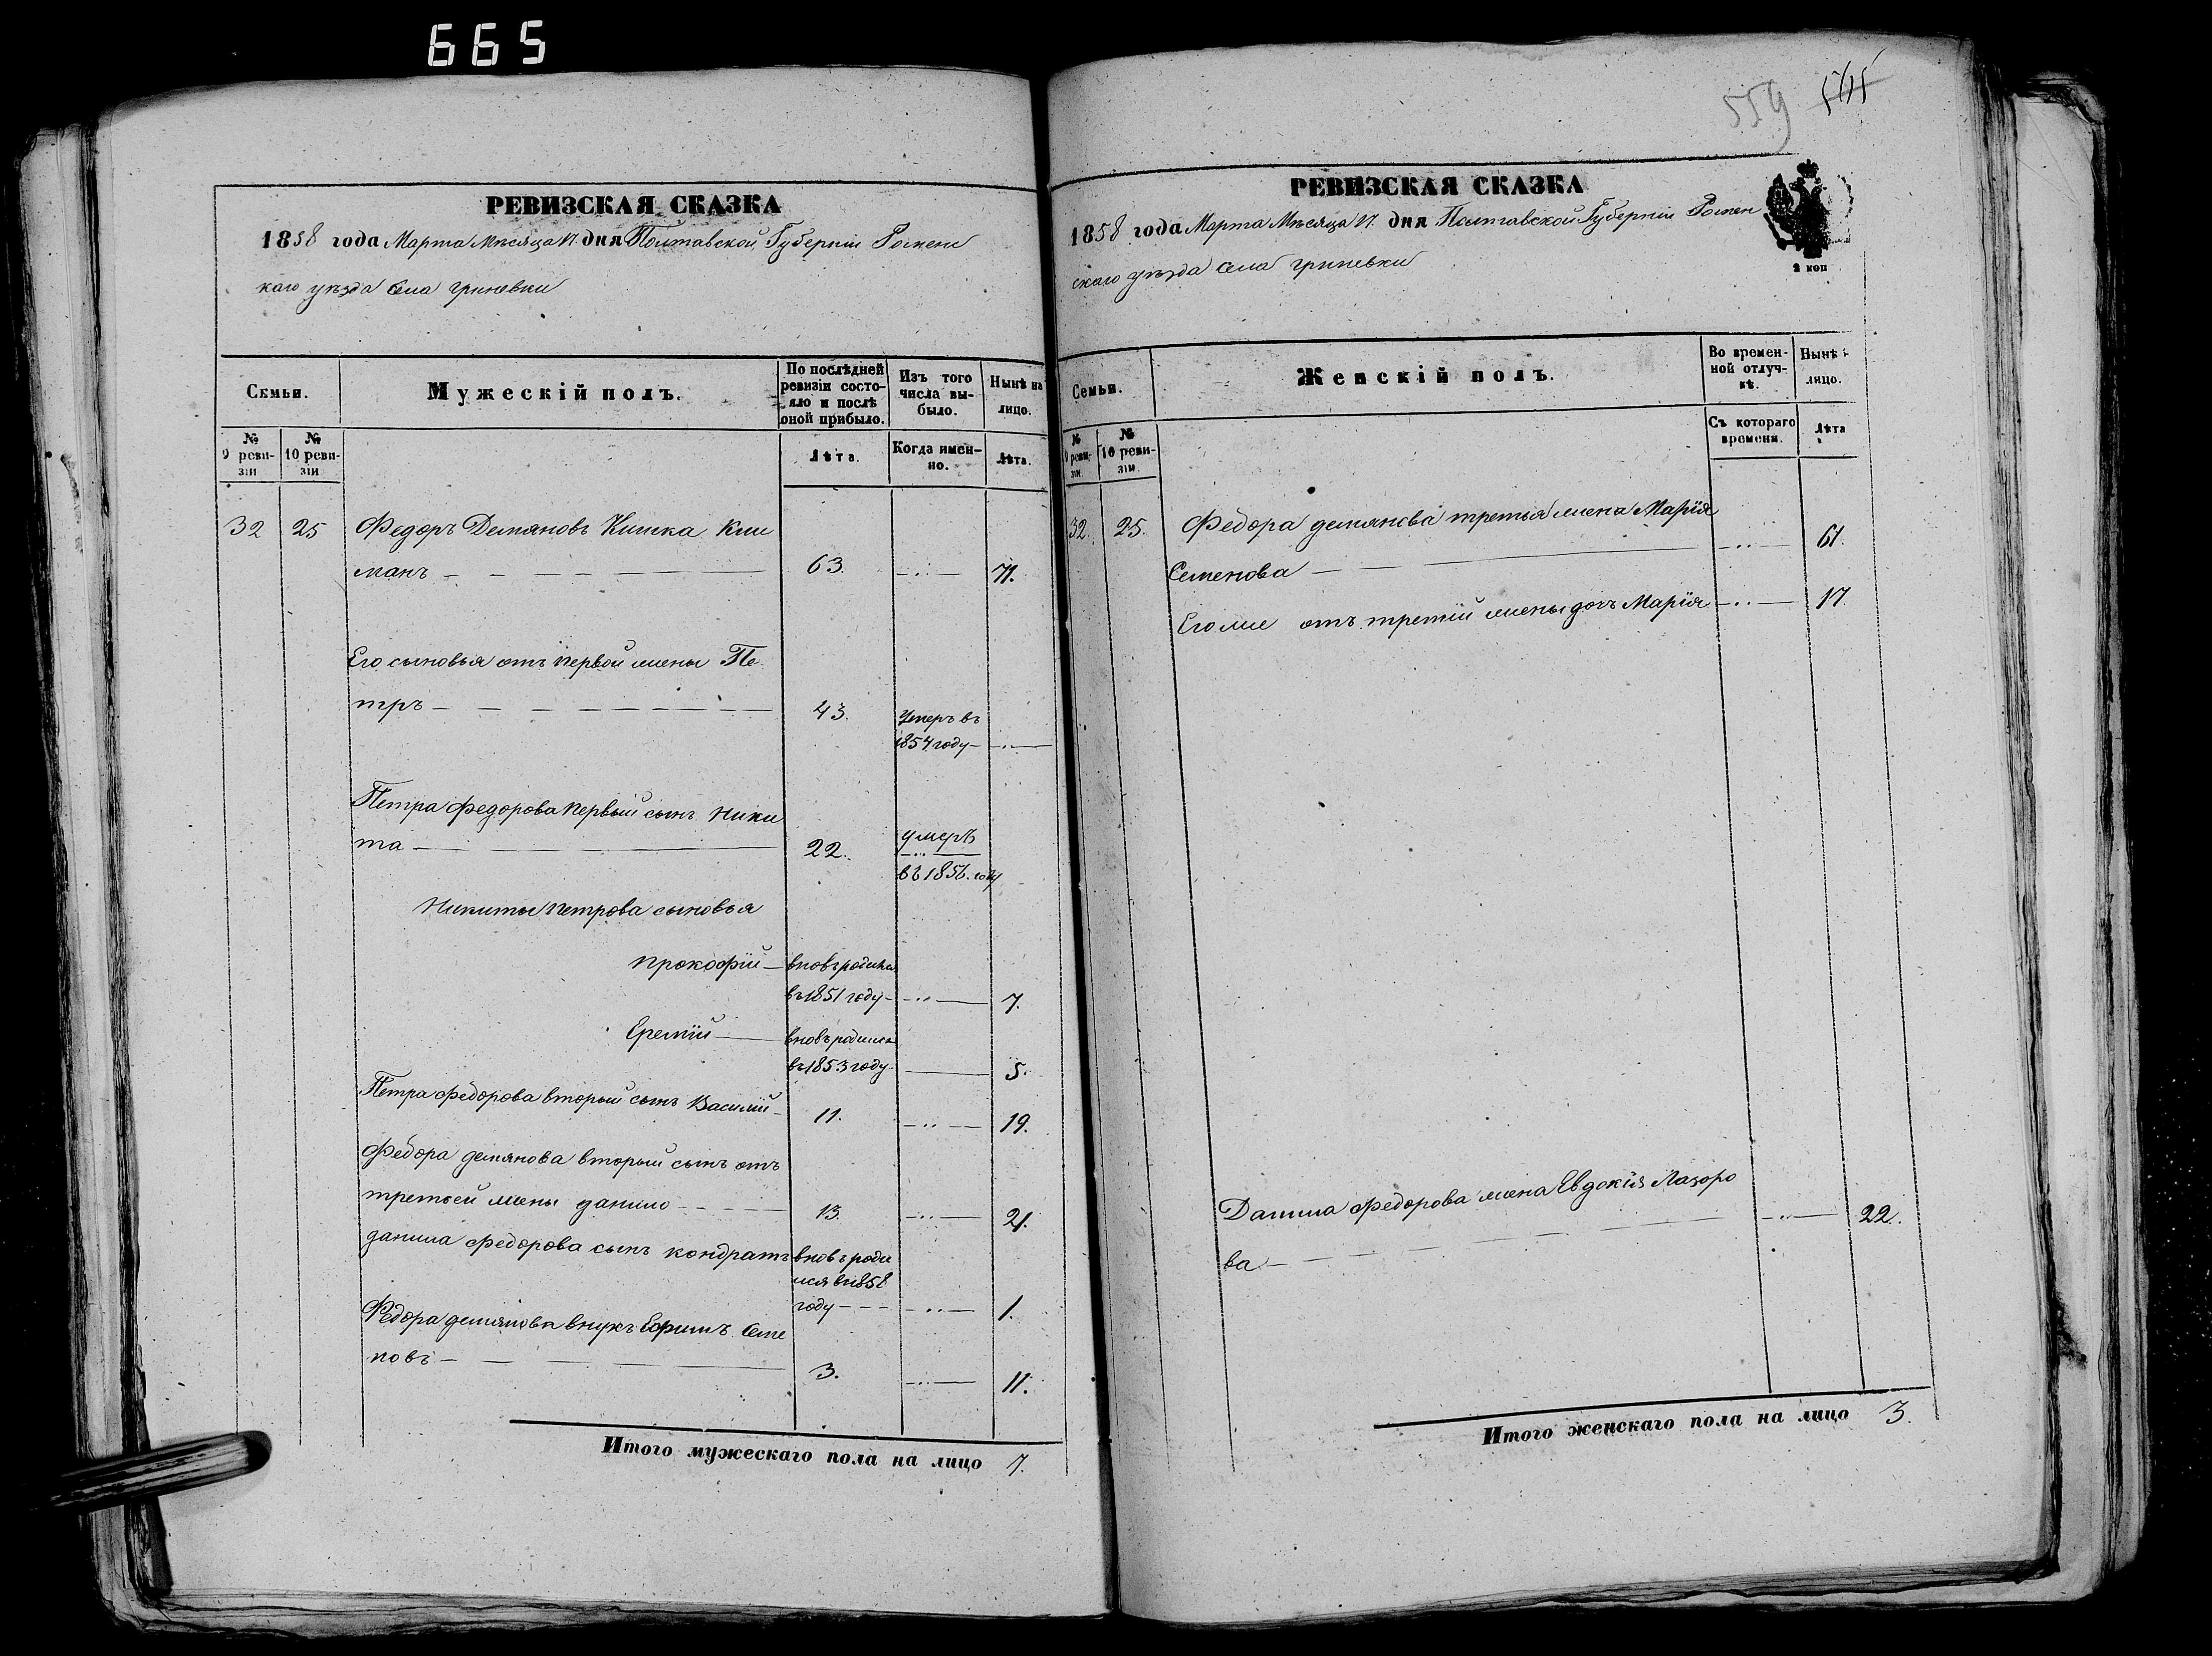 665
РЕВИЗСКАЯ СКАЗКА
1858 года Марта Мѣсяца 17. дня Полтавской Губерніи Роменс
каго уѣзда Села Гриневки
Семьи.
Мужескій полъ.
По послѣдней ревизіи состояло и послѣ оной прибыло.
Изъ того числа выбыло.
Нынѣ на лицо.
№ 9 ревизіи
№ 10 ревизіи
Лѣта.
Когда именно.
Лѣта.
32 25 Федоръ Демяновъ Кишка Кли
манъ 63. 71.
Его сыновья отъ первой жены Пе
тръ 43. Умеръ въ
1854 году
Петра Федорова первый сынъ Ники
та 22. умеръ
въ 1856. году
Никиты Петрова сыновья
Прокофій вновь родился
въ 1851 году 7.
Еремій вновь родился
въ 1853 году 5.
Петра Федорова вторый сынъ Василій 11. 19.
Федора Демянова вторый сынъ отъ
третьей жены Данило 13. 21.
Данила Федорова сынъ Кондратъ вновь роди
лся въ 1858
году 1.
Федора Демянова внукъ Ефимъ Семе
новъ 3. 11.
Итого мужескаго пола на лицо 7.
559 565
РЕВИЗСКАЯ СКАЗКА
1858 года Марта Мѣсяца 17. дня Полтавской Губерніи Ромен
скаго уѣзда Села Гриневки
2 коп
Семьи.
Женскій полъ.
Во временной отлучкѣ.
Нынѣ
лицо.
№ 9 ревизіи
№ 10 ревизіи
Съ котораго времени.
Лѣта
32. 25. Федора Демянова третья жена Марія
Семенова 61.
Его же отъ третій жены дочь Марія 17.
Данила Федорова жена Евдокія Лазоро
ва 22.
Итого женскаго пола на лицо 3.